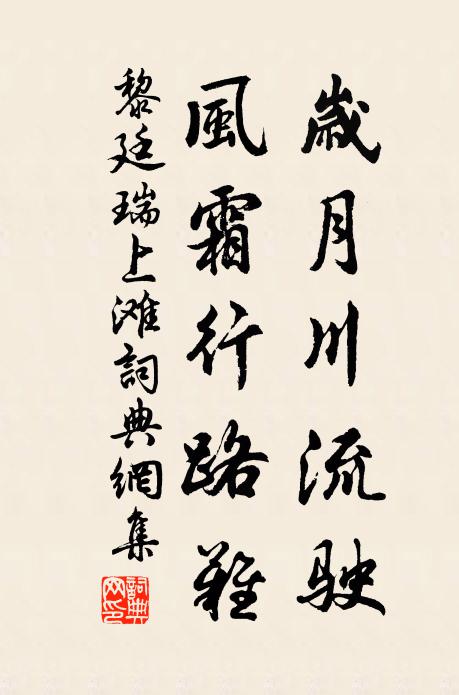 歲月川流駛
風霜行路難
黎廷瑞上滩詞典網集
詞典網印